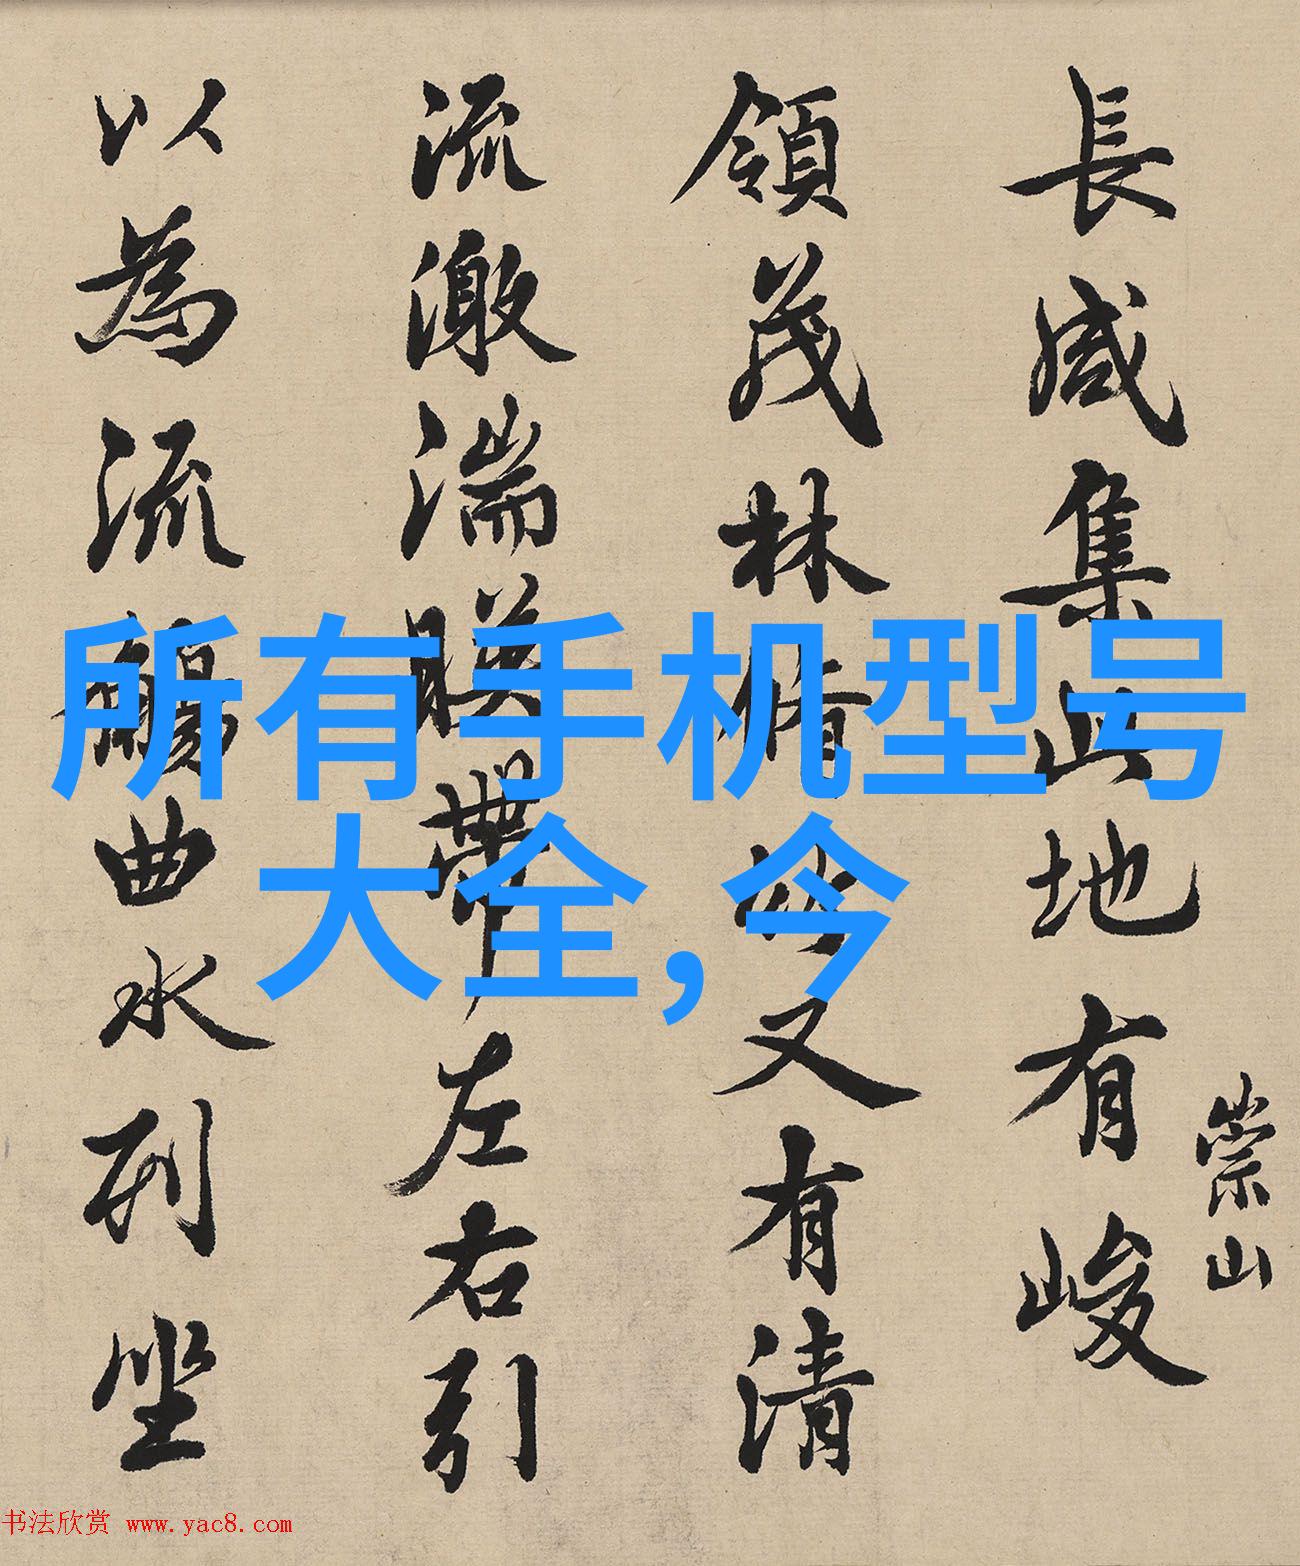 長咸集此地有峻
崇山
領茂林脩竹又有清
流激湍暎帶左右引
以為流觴曲水列坐
所有手机型号
大全,今
书法欣赏 www.yac8.com